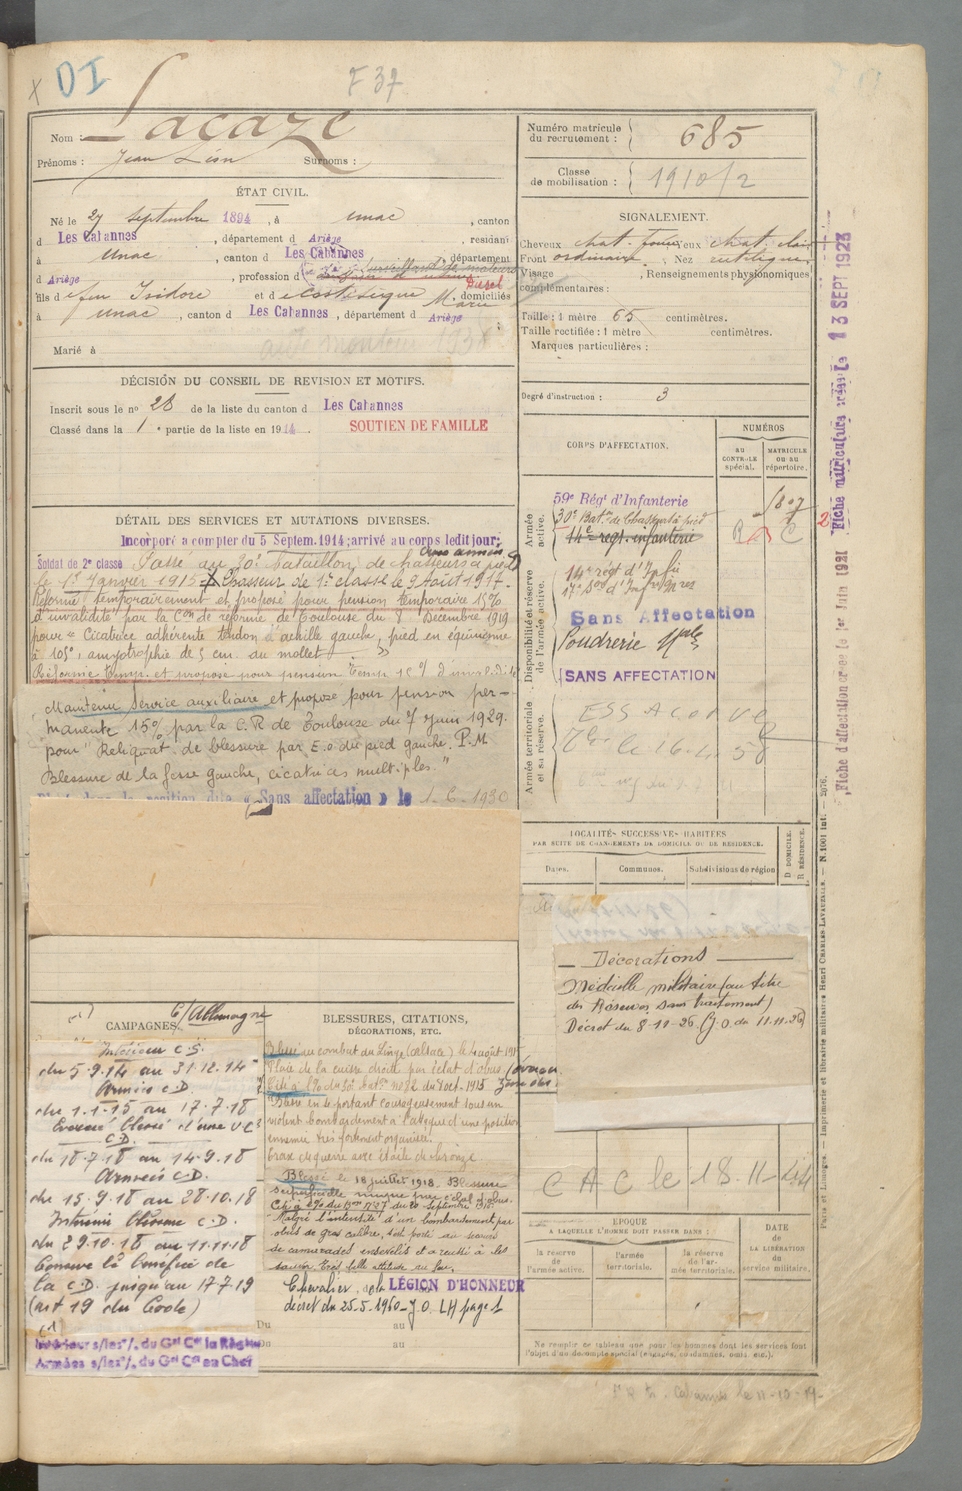 x DI
F 37
Nom : Lacaze
Prénoms : Jean Léon Surnoms :
Numéro matricule du recrutement : 685
Classe de mobilisation : 1910/2
ÉTAT CIVIL.
Né le 27 septembre 1894, à Unac, canton
d Les Cabannes, département d Ariège, résidant
à Unac, canton d Les Cabannes, département
d Ariège, profession d
fils d feu Isidore et d Marie domiciliés
à Unac, canton d Les Cabannes, département d Ariège
Marié à
SIGNALEMENT.
Cheveux chat. Yeux chat. clair
Front ordinaire. Nez rectiligne.
Visage , Renseignements physionomiques
complémentaires :
Taille : 1 mètre 65 centimètres.
Taille rectifiée : 1 mètre centimètres.
Marques particulières :
Degré d'instruction : 3
DÉCISION DU CONSEIL DE REVISION ET MOTIFS.
Inscrit sous le n° 28 de la liste du canton d Les Cabannes
Classé dans la 1e partie de la liste en 1914.
SOUTIEN DE FAMILLE
DÉTAIL DES SERVICES ET MUTATIONS DIVERSES.
Incorporé à compter du 5 Septem. 1914; arrivé au corps ledit jour;
Soldat de 2e classe Passé au 30e bataillon de chasseurs à pied
le 1er Janvier 1915 Chasseur de 1e classe le 9 Août 1917.
Réformé temporairement et proposé pour pension temporaire 15%
d'invalidité par la Con de réforme de Toulouse du 8 Décembre 1919
pour « Cicatrice adhérente tendon d'achille gauche, pied en équinisme
à 105°, amyotrophie de 5 cm. du mollet. »
Réformé temp. et proposé pour pension temp. 15% d'invalidité
Maintenu Service auxiliaire et proposé pour pension per-
manente 15% par la C.R de Toulouse du 7 Juin 1929.
pour " Reliquat de blessure par E.o du pied gauche. P.M.
Blessure de la fesse gauche, cicatrices multiples."
Sans affectation » le 1.6.1930
CORPS D'AFFECTATION.
NUMÉROS
AU CONTROLE spécial.
MATRICULE OU AU répertoire.
Armée active.
59e Régt d'Infanterie
30e Baton de Chasseurs à pied
14e régt. infanterie
Disponibilité et réserve de l'armée active.
14e régt d'Infie
17e Son d'Infirmiers
Sans Affectation
Poudrerie Nale
SANS AFFECTATION
Armée territoriale et sa réserve.
LOCALITÉS SUCCESSIVES HABITÉES
PAR SUITE DE CHANGEMENTS DE DOMICILE OU DE RÉSIDENCE.
Dates.
Communes.
Subdivisions de région
D. DOMICILE. R. RÉSIDENCE.
Décorations
Médaille militaire (au titre
des Réserves, sans traitement)
Décret du 8-11-26 (J.O. du 11.11.26)
CAMPAGNES.
C/Allemagne
Intérieur C.S.
du 5.9.14 au 31.12.14
Armées C.D.
du 1.1.15 au 17.7.18
Evacué blessé d'une U.C.
C.D.
du 18.7.18 au 14.9.18
Armées C.D.
du 15.9.18 au 28.10.18
Intérieur blessure C.D.
du 29.10.18 au 11.11.18
Conserve le bénéfice de
la C.D. jusqu'au 17.7.19
(art 19 du Code)
Intérieur s/les o/. du Gal Ct la Région
Armées s/les o/. du Gal Ct en Chef
BLESSURES, CITATIONS, DÉCORATIONS, ETC.
Blessé au combat du Linge (Alsace) le 4 août 1915
Plaie de la cuisse droite par éclat d'obus
Cité à l'O. du 30e Baton n° 82 du 9 oct. 1915
Blessé en se portant courageusement sous un
violent bombardement à l'attaque d'une position
ennemie très fortement organisée.
Croix de guerre avec étoile de bronze
Blessé le 18 juillet 1918. Blessure
superficielle nuque par éclat d'obus.
"Malgré l'intensité d'un bombardement par
obus de gros calibre, s'est porté au secours
de camarades ensevelis et a réussi à les
sauver. Très belle attitude au feu.
Chevalier de la LÉGION D'HONNEUR
décret du 25.5.1960 - J.O. LH page 1
Du au
Du au
C A C le 18-11-44
ÉPOQUE
A LAQUELLE L'HOMME DOIT PASSER DANS :
la réserve de l'armée active.
l'armée territoriale.
la réserve de l'armée territoriale.
DATE de la LIBÉRATION du service militaire.
Ne remplir ce tableau que pour les hommes dont les services font
l'objet d'un décompte spécial (engagés, condamnés, omis, etc.).
Fiche matriculaire créée le 13 SEPT 1923
Fiche d'affectation créée le 1er Juin 1921
Paris et Limoges. — Imprimerie et librairie militaires Henri CHARLES-LAVAUZELLE. — N. 1001 int. — 2976.